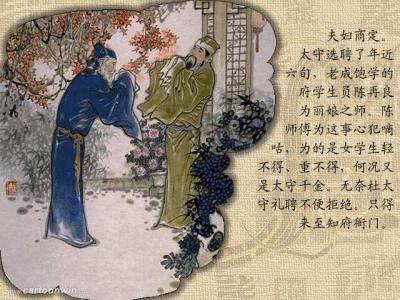 夫妇商定。
太守选聘了年近
六旬，老成饱学的
府学生员陈再良
为丽娘之师。陈
师傅为这事心犯嘀
咕，为的是女学生轻
不得、重不得，何况又
是太守千金。无奈杜太
守礼聘不便拒绝。只得
来至知府衙门。
cartoonwin